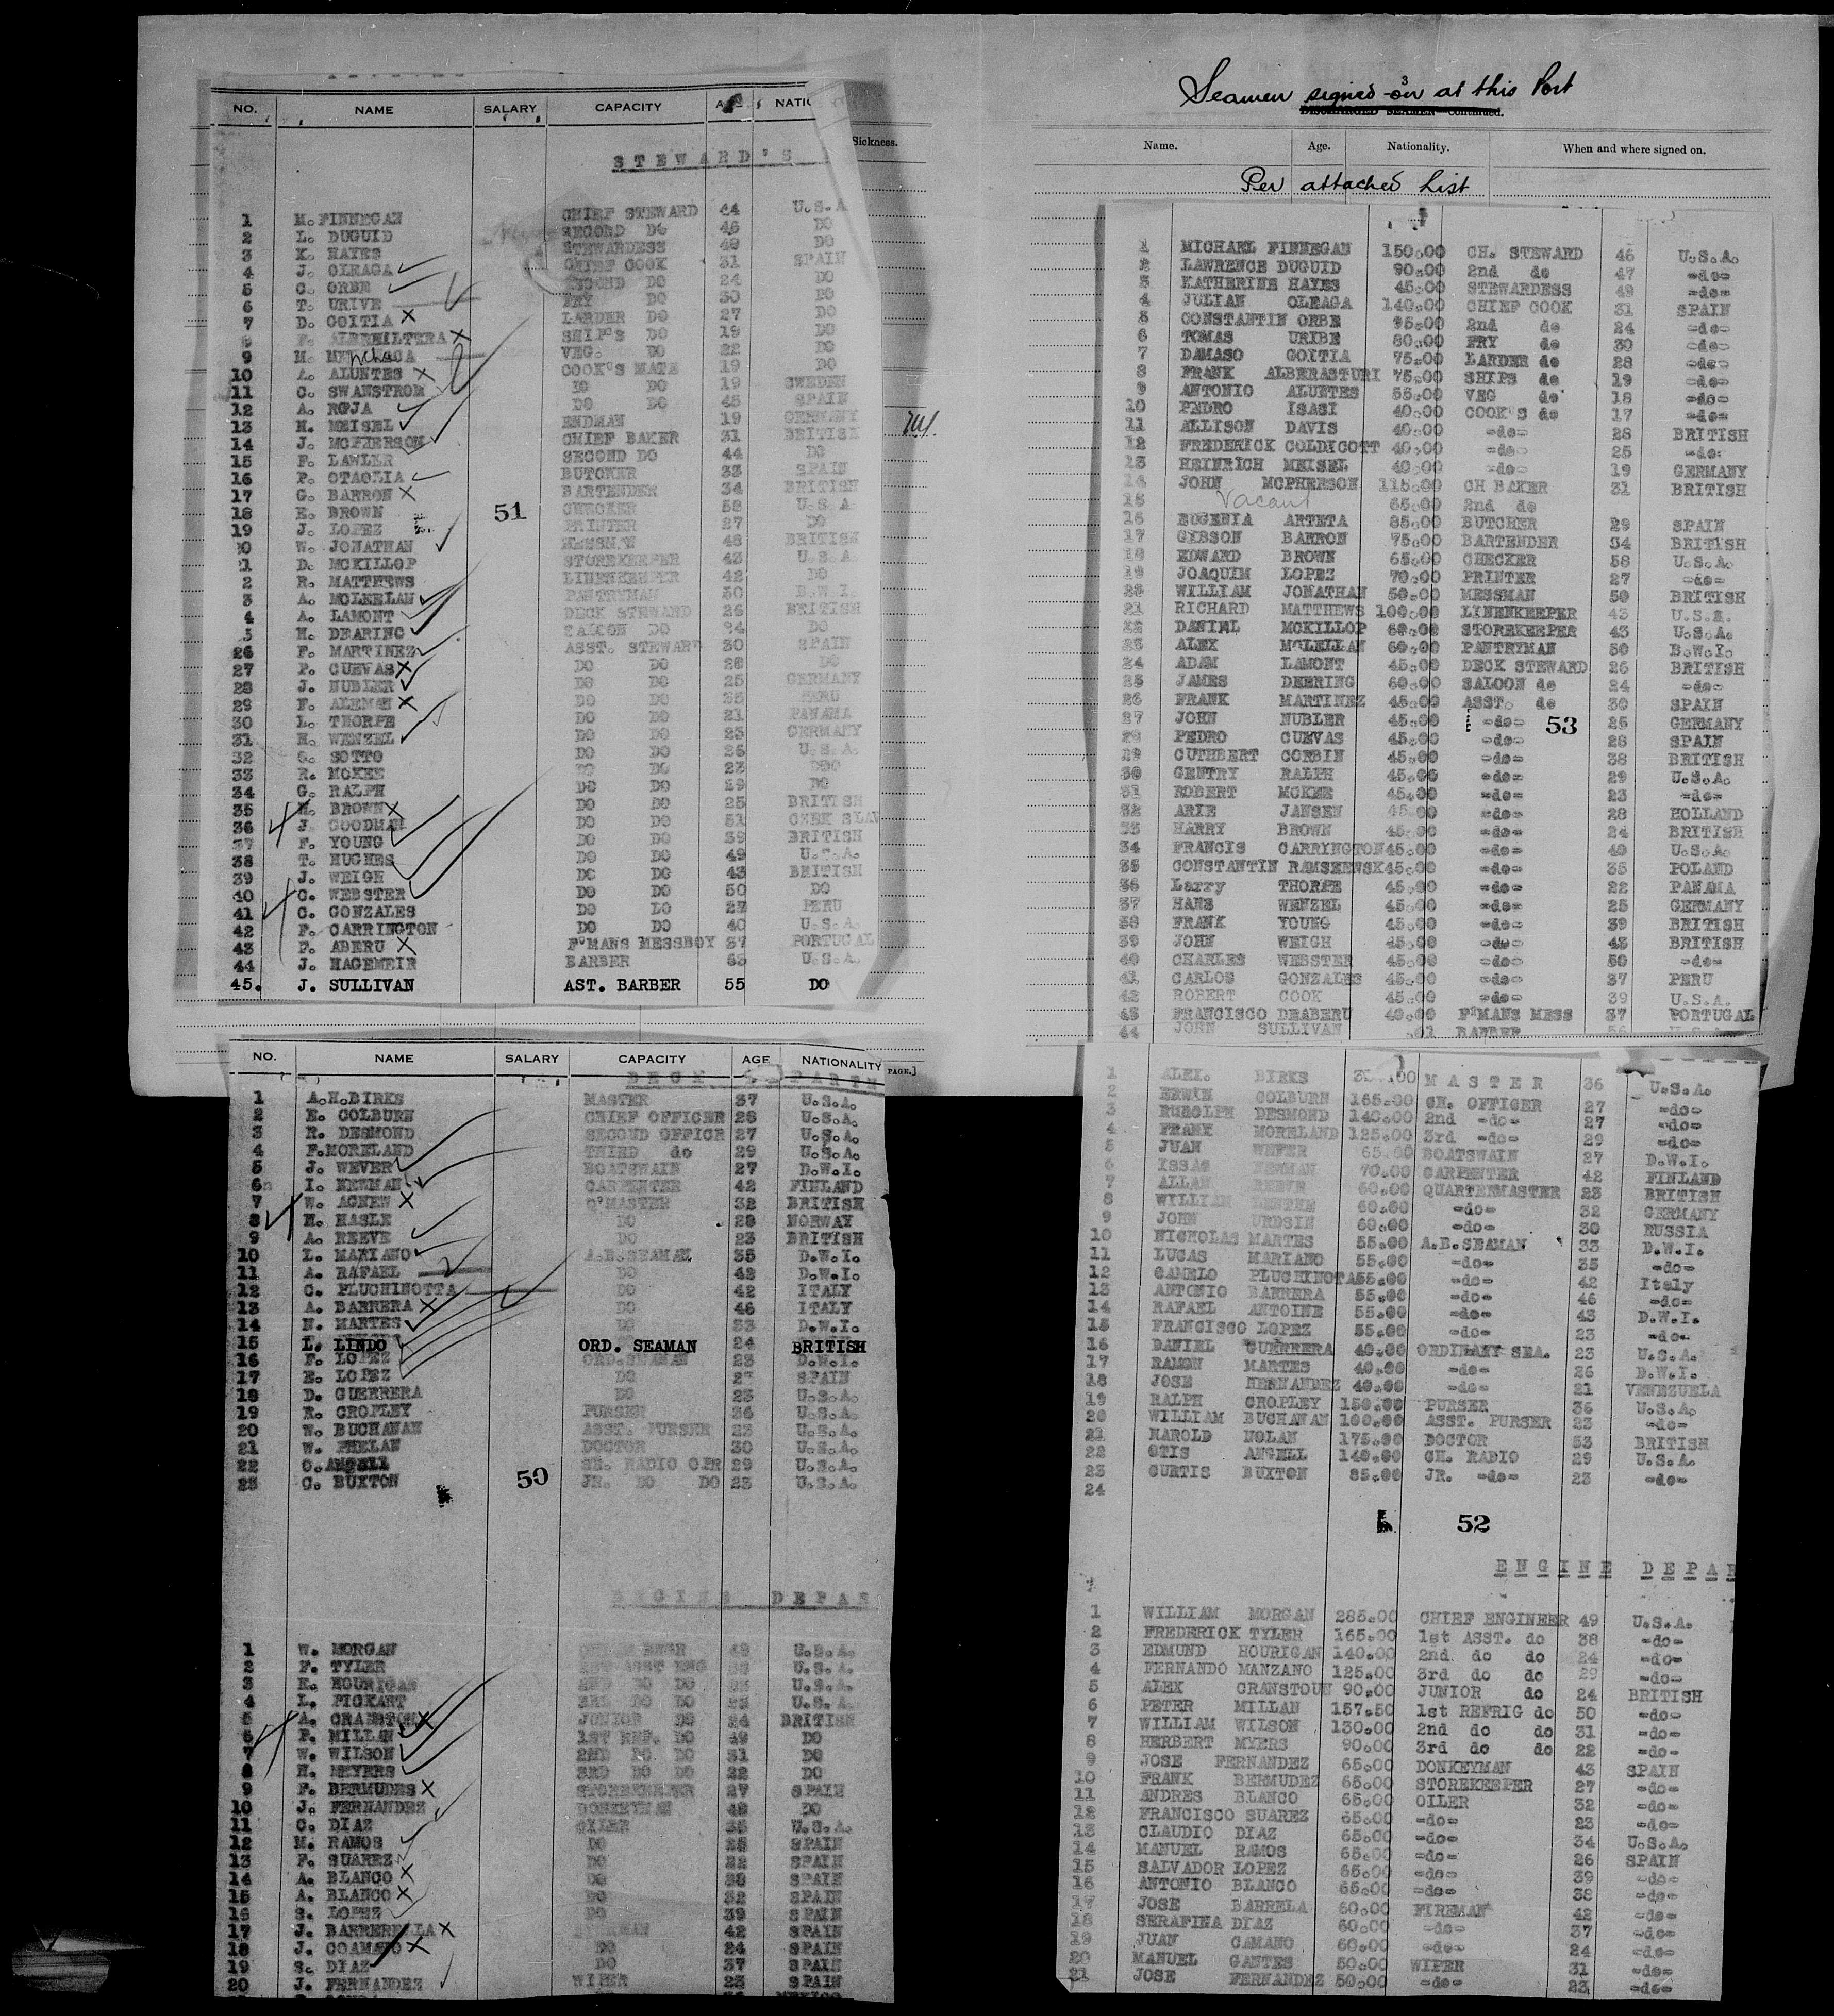 NO. NAME SALARY CAPACITY NATIO
STEWARD'S
1 M. FINNEGAN CHIEF STEWARD 44 U.S.A
2 L. DUGUID SECOND DO 46 DO
3 K. HAYES STEWARDESS 49 DO
4 J. OLEAGA CHIEF COOK 31 SPAIN
5 C. ORBE SECOND DO 24 DO
6 T. URIVE FRY DO 30 DO
7 D. GOITIA X LARDER DO 27 DO
F. X SHIP'S DO 19 DO
9 M. VEG. DO 22 DO
10 A. ALUNTES X COOK'S MATE 19 DO
11 C. SWANSTROM DO DO 19 SWEDEN
12 A. ROJA DO DO 45 SPAIN
13 H. MEISEL ENDMAN 19 GERMANY
14 J. MCPHERSON CHIEF BAKER 31 BRITISH
15 F. LAWLER SECOND DO 44 DO
16 P. OTAOLIA BUTCHER 33 SPAIN
17 G. BARRON X BARTENDER 34 BRITISH
18 E. BROWN CHECKER 58 U.S.A.
51
19 J. LOPEZ PRINTER 27 DO
20 W. JONATHAN MESSMAN 48 BRITISH
21 D. MCKILLOP STOREKEEPER 43 U.S.A.
2 R. MATTHEWS LINENKEEPER 42 DO
3 A. MCLELLAN PANTRYMAN 50 B.W.I.
4 A. LAMONT DECK STEWARD 26 BRITISH
5 H. DEARING SALOON DO 24 DO
26 F. MARTINEZ ASST. STEWARD 30 SPAIN
27 P. CUEVAS X DO DO 28 DO
28 J. NUBLER DO DO 25 GERMANY
29 F. ALEMAN X DO DO 35 PERU
30 L. THORPE DO DO 21 PANAMA
31 H. WENZEL DO DO 23 GERMANY
32 G. SOTTO DO DO 26 U.S.A.
33 R. MCKEE DO DO 23 DDO
34 G. RALPH DO DO 29 DO
35 H. BROWN X DO DO 25 BRITISH
36 J. GOODMAN DO DO 51 CZEK SLAV
37 F. YOUNG DO DO 39 BRITISH
38 T. HUGHES DO DO 49 U.S.A.
39 J. WEIGH DO DO 43 BRITISH
40 C. WEBSTER DO DO 50 DO
41 C. GONZALES DO DO 27 PERU
42 F. CARRINGTON DO DO 40 U.S.A.
43 F. ABERU X F'MANS MESSBOY 37 PORTUGAL
44 J. HAGEMEIR BARBER 63 U.S.A.
45. J. SULLIVAN AST. BARBER 55 DO
Sickness.
3
Seamen signed on at this Port
DISCHARGED SEAMEN—Continued.
Name. Age. Nationality. When and where signed on.
Per attached List
1 MICHAEL FINNEGAN 150.00 CH. STEWARD 46 U.S.A.
2 LAWRENCE DUGUID 90.00 2nd do 47 -do-
3 KATHERINE HAYES 45.00 STEWARDESS 49 -do-
4 JULIAN OLEAGA 140.00 CHIEF COOK 31 SPAIN
5 CONSTANTIN ORBE 95.00 2nd do 24 -do-
6 TOMAS URIBE 80.00 FRY do 30 -do-
7 DAMASO GOITIA 75.00 LARDER do 28 -do-
8 FRANK ALBERASTURI 75.00 SHIPS do 19 -do-
9 ANTONIO ALUNTES 55.00 VEG do 18 -do-
10 PEDRO ISASI 40.00 COOK'S do 17 -do-
11 ALLISON DAVIS 40.00 -do- 28 BRITISH
12 FREDERICK COLDICOTT 40.00 -do- 25 -do-
13 HEINRICH MEISEL 40.00 -do- 19 GERMANY
14 JOHN MCPHERSON 115.00 CH BAKER 31 BRITISH
15 Vacant 65.00 2nd do
16 EUGENIA ARTETA 85.00 BUTCHER 29 SPAIN
17 GIBSON BARRON 75.00 BARTENDER 34 BRITISH
18 EDWARD BROWN 65.00 CHECKER 58 U.S.A.
19 JOAQUIM LOPEZ 70.00 PRINTER 27 -do-
20 WILLIAM JONATHAN 50.00 MESSMAN 50 BRITISH
21 RICHARD MATTHEWS 100.00 LINENKEEPER 43 U.S.A.
22 DANIEL MCKILLOP 60.00 STOREKEEPER 43 U.S.A.
23 ALEX MCLELLAN 60.00 PANTRYMAN 50 B.W.I.
24 ADAM LAMONT 45.00 DECK STEWARD 26 BRITISH
25 JAMES DEERING 60.00 SALOON do 24 -do-
26 FRANK MARTINEZ 45.00 ASST. do 30 SPAIN
27 JOHN NUBLER 45.00 -do- 53 25 GERMANY
28 PEDRO CUEVAS 45.00 -do- 28 SPAIN
29 CUTHBERT CORBIN 45.00 -do- 38 BRITISH
30 GENTRY RALPH 45.00 -do- 29 U.S.A.
31 ROBERT MCKEE 45.00 -do- 23 -do-
32 ARIE JANSEN 45.00 -do- 28 HOLLAND
33 HARRY BROWN 45.00 -do- 24 BRITISH
34 FRANCIS CARRINGTON 45.00 -do- 40 U.S.A.
35 CONSTANTIN RAMSZEWSK 45.00 -do- 35 POLAND
36 Larry THORPE 45.00 -do- 22 PANAMA
37 HANS WENZEL 45.00 -do- 25 GERMANY
38 FRANK YOUNG 45.00 -do- 39 BRITISH
39 JOHN WEIGH 45.00 -do- 43 BRITISH
40 CHARLES WEBSTER 45.00 -do- 50 -do-
41 CARLOS GONZALES 45.00 -do- 37 PERU
42 ROBERT COOK 45.00 -do- 39 U.S.A.
43 FRANCISCO DEABERU 40.00 F'MANS MESS 37 PORTUGAL
44 JOHN SULLIVAN .01 BARBER 56 U.S.A.
NO. NAME SALARY CAPACITY AGE NATIONALITY
PAGE.]
DECK DEPARTM
1 A.H.BIRKS MASTER 37 U.S.A.
2 E. COLBURN CHIEF OFFICER 28 U.S.A.
3 R. DESMOND SECOND OFFICR 27 U.S.A.
4 F.MORELAND THIRD do 29 U.S.A.
5 J. WEVER BOATSWAIN 27 D.W.I.
6 I. NEWMAN CARPENTER 42 FINLAND
7 W. AGNEW X Q'MASTER 32 BRITISH
8 H. HASLE DO 28 NORWAY
9 A. REEVE DO 23 BRITISH
10 L. MARIANO A.B.SEAMAN 35 D.W.I.
11 A. RAFAEL DO 42 D.W.I.
12 C. PLUCHINOTTA DO 42 ITALY
13 A. BARRERA X DO 46 ITALY
14 N. MARTES DO 33 D.W.I.
15 L. LINDO ORD. SEAMAN 24 BRITISH
16 F. LOPEZ ORD.SEAMAN 23 D.W.I.
17 E. LOPEZ DO SPAIN
18 D. GUERRERA DO 23 U.S.A.
19 R. CROPLEY PURSER 36 U.S.A.
20 W. BUCHANAN ASST. PURSER 23 U.S.A.
21 W. PHELAN DOCTOR 30 U.S.A.
22 O.ANGELL CH. RADIO OPR 29 U.S.A.
23 C. BUXTON 50 JR. DO DO 23 U.S.A.
ENGINE DEPAR
1 W. MORGAN U.S.A.
2 F. TYLER 1ST ASST ENG U.S.A.
3 E. HOURIGAN 2ND DO DO 23 U.S.A.
4 L. PICKART 3RD DO DO U.S.A.
5 A. CRANSTON X JUNIOR DO 24 BRITISH
6 P. MILLAN 1ST REF. DO 49 DO
7 W. WILSON 2ND DO. DO 31 DO
8 H. MEYERS 3RD DO DO 22 DO
9 F. BERMUDES X STOREKEEPER 27 SPAIN
10 J. FERNANDEZ DONKEYMAN DO
11 C. DIAZ OILER 35 U.S.A.
12 M. RAMOS DO 25 SPAIN
13 F. SUAREZ DO 22 SPAIN
14 A. BLANCO X DO 38 SPAIN
15 A. BLANCO X DO 32 SPAIN
16 S. LOPEZ DO 39 SPAIN
17 J. X 42 SPAIN
18 J. X DO 24 SPAIN
19 S. DIAZ DO 37 SPAIN
20 J. FERNANDEZ WIPER 23 SPAIN
1 ALEX. BIRKS MASTER 36 U.S.A.
2 ERWIN COLBURN 165.00 CH. OFFICER 27 -do-
3 RUDOLPH DESMOND 140.00 2nd -do- 27 -do-
4 FRANK MORELAND 125.00 3rd -do- 29 -do-
5 JUAN WEFER 65.00 BOATSWAIN 27 D.W.I.
6 ISSAC NEWMAN 70.00 CARPENTER 42 FINLAND
7 ALLAN REEVE 60.00 QUARTERMASTER 23 BRITISH
8 WILLIAM 60.00 -do- 32 GERMANY
9 JOHN URDSIN 60.00 -do- 30 RUSSIA
10 NICHOLAS MARTES 55.00 A.B.SEAMAN 33 D.W.I.
11 LUCAS MARIANO 55.00 -do- 35 -do-
12 CAMELO PLUCHINOTA 55.00 -do- 42 Italy
13 ANTONIO BARRERA 55.00 -do- 46 -do-
14 RAFAEL ANTOINE 55.00 -do- 43 D.W.I.
15 FRANCISCO LOPEZ 55.00 -do- 23 -do-
16 DANIEL GUERRERA 40.00 ORDINARY SEA. 23 U.S.A.
17 RAMON MARTES 40.00 -do- 26 D.W.I.
18 JOSE HERNANDEZ 40.00 -do- 21 VENEZUELA
19 RALPH CROPLEY 150.00 PURSER 36 U.S.A.
20 WILLIAM BUCHANAN 100.00 ASST. PURSER 23 -do-
21 HAROLD NOLAN 175.00 DOCTOR 53 BRITISH
22 OTIS ANGELL 140.00 CH. RADIO 29 U.S.A.
23 CURTIS BUXTON 85.00 JR. -do- 23 -do-
24
52
ENGINE DEPAR
1 WILLIAM MORGAN 285.00 CHIEF ENGINEER 49 U.S.A.
2 FREDERICK TYLER 165.00 1st ASST. do 38 -do-
3 EDMUND HOURIGAN 140.00 2nd. do do 24 -do-
4 FERNANDO MANZANO 125.00 3rd do do 29 -do-
5 ALEX CRANSTOUN 90.00 JUNIOR do 24 BRITISH
6 PETER MILLAN 157.50 1st REFRIG do 50 -do-
7 WILLIAM WILSON 130.00 2nd do do 31 -do-
8 HERBERT MYERS 90.00 3rd do do 22 -do-
9 JOSE FERNANDEZ 65.00 DONKEYMAN 43 SPAIN
10 FRANK BERMUDEZ 65.00 STOREKEEPER 27 -do-
11 ANDRES BLANCO 65.00 OILER 32 -do-
12 FRANCISCO SUAREZ 65.00 -do- 23 -do-
13 CLAUDIO DIAZ 65.00 -do- 34 U.S.A.
14 MANUEL RAMOS 65.00 -do- 26 SPAIN
15 SALVADOR LOPEZ 65.00 -do- 39 -do-
16 ANTONIO BLANCO 65.00 -do- 38 -do-
17 JOSE BARRELA 60.00 FIREMAN 42 -do-
18 SERAFINA DIAZ 60.00 -do- 37 -do-
19 JUAN CAMANO 60.00 -do- 24 -do-
20 MANUEL GANTES 50.00 WIPER 31 -do-
21 JOSE FERNANDEZ 50.00 -do- 23 -do-